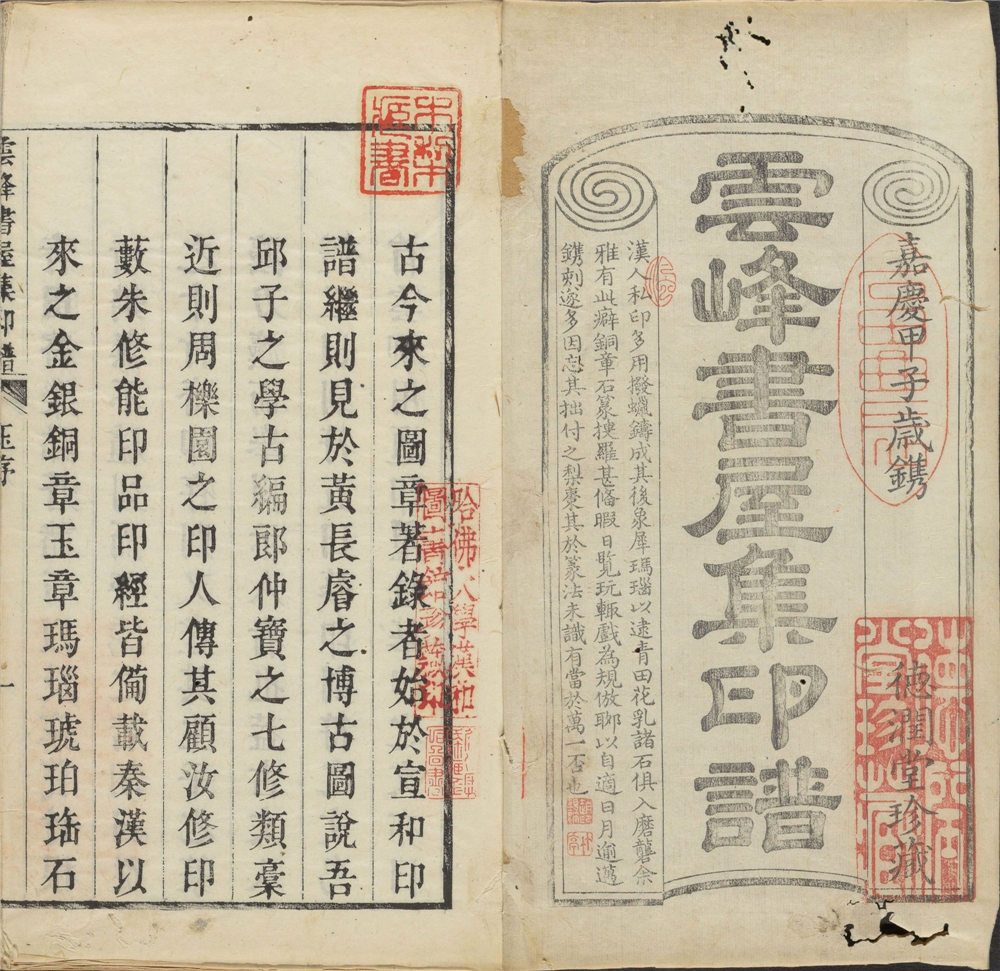 嘉慶甲子歲鐫
德潤堂珍藏
雲峰書屋集印譜
漢人私印多用撥蠟鑄成其後象犀瑪瑙以逮青田花乳諸石俱入磨礱余
雅有此癖銅章石篆搜羅甚俻暇日覧玩輙戲為規倣聊以自適日月逾邁
鐫刻遂多因忘其拙付之梨棗其於篆法未識有當於萬一否也
古今來之圖章著錄者始於宣和印
譜繼則見於黃長睿之博古圖說吾
邱子之學古編郎仲寶之七修類稾
近則周櫟園之印人傳其顧汝修印
藪朱修能印品印經皆僃載秦漢以
來之金銀銅章玉章瑪瑙琥珀珤石
雲峰書屋集印譜
序
一
哈佛大學漢和
圖書館珍藏印